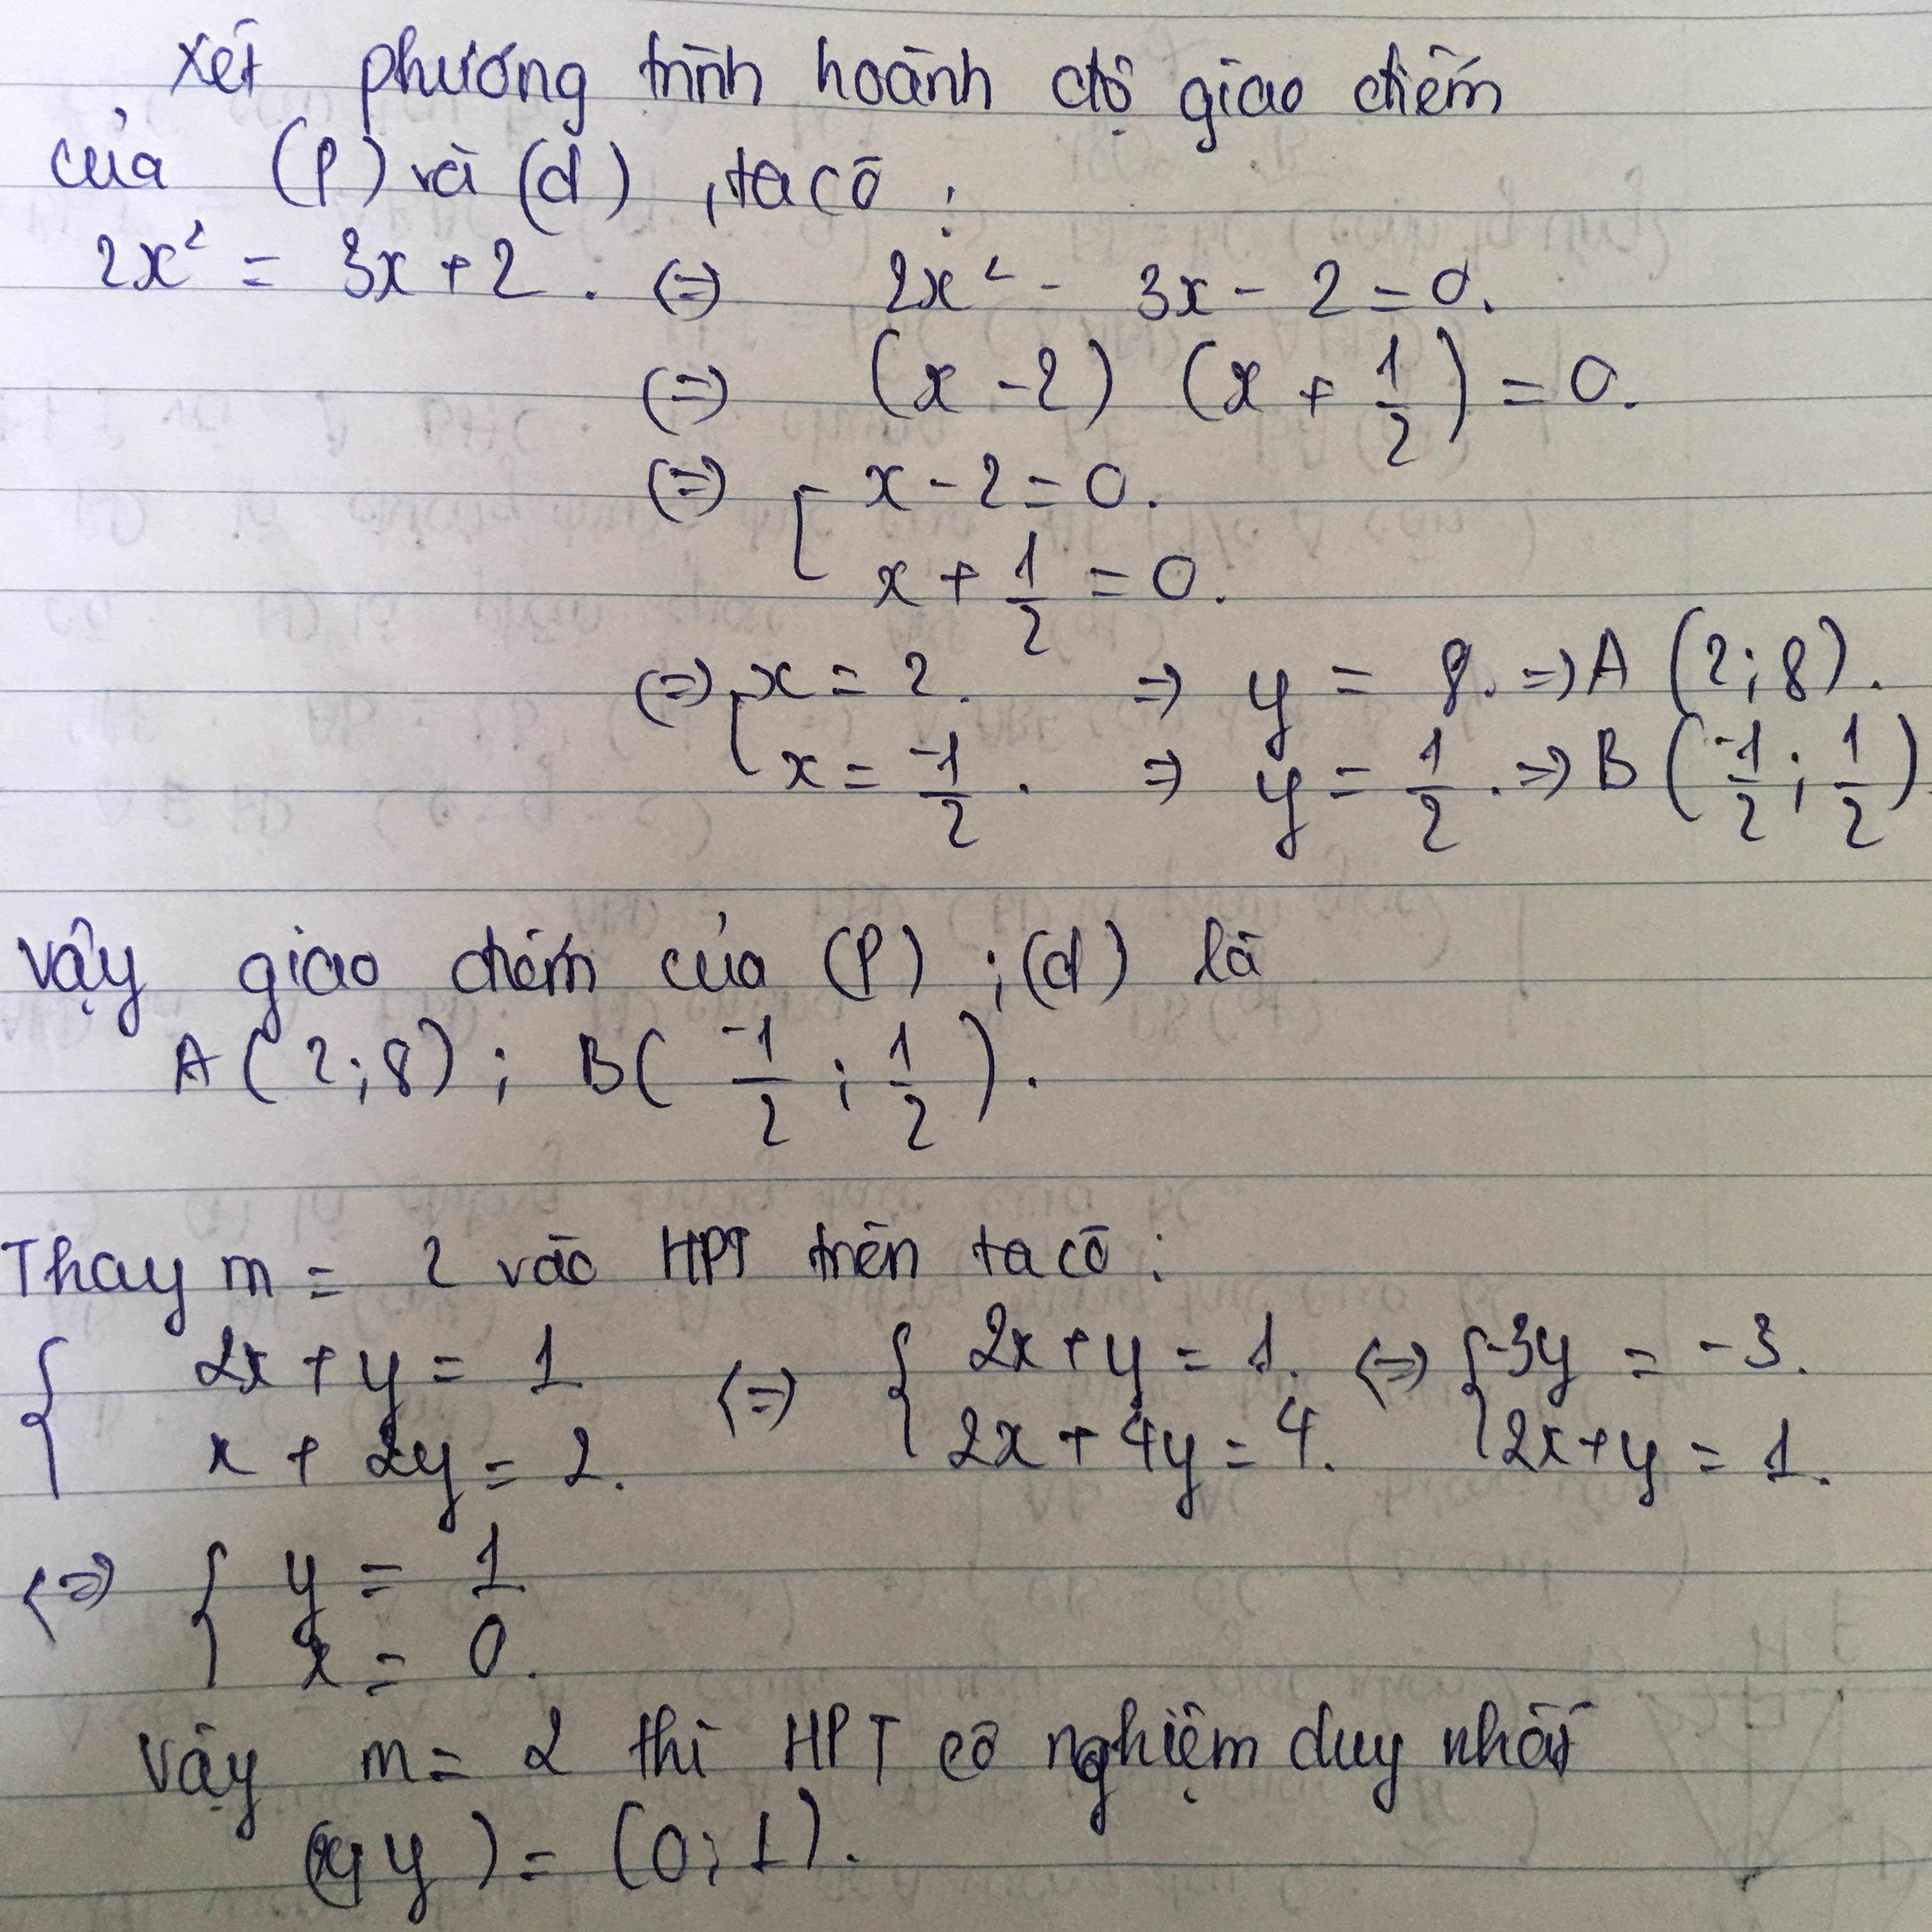 xét phương trình hoành độ giao điểm
của (P) và (d) , ta có :
2x² = 3x + 2 . (=) 2x² - 3x - 2 = 0.
(=) (x - 2) (x + 1/2) = 0.
(=) [ x - 2 = 0.
x + 1/2 = 0.
(=) [ x = 2. => y = 8. => A (2 ; 8).
x = -1/2 . => y = 1/2 . => B (-1/2 ; 1/2).
Vậy giao điểm của (P) ; (d) là
A ( 2 ; 8) ; B ( -1/2 ; 1/2 ) .
Thay m = 2 vào HPT trên ta có :
{ 2x + y = 1 <=> { 2x + y = 1. <=> { -3y = -3.
x + 2y = 2. 2x + 4y = 4. 2x + y = 1.
<=> { y = 1
x = 0.
Vậy m = 2 thì HPT có nghiệm duy nhất
(x; y) = (0; 1).